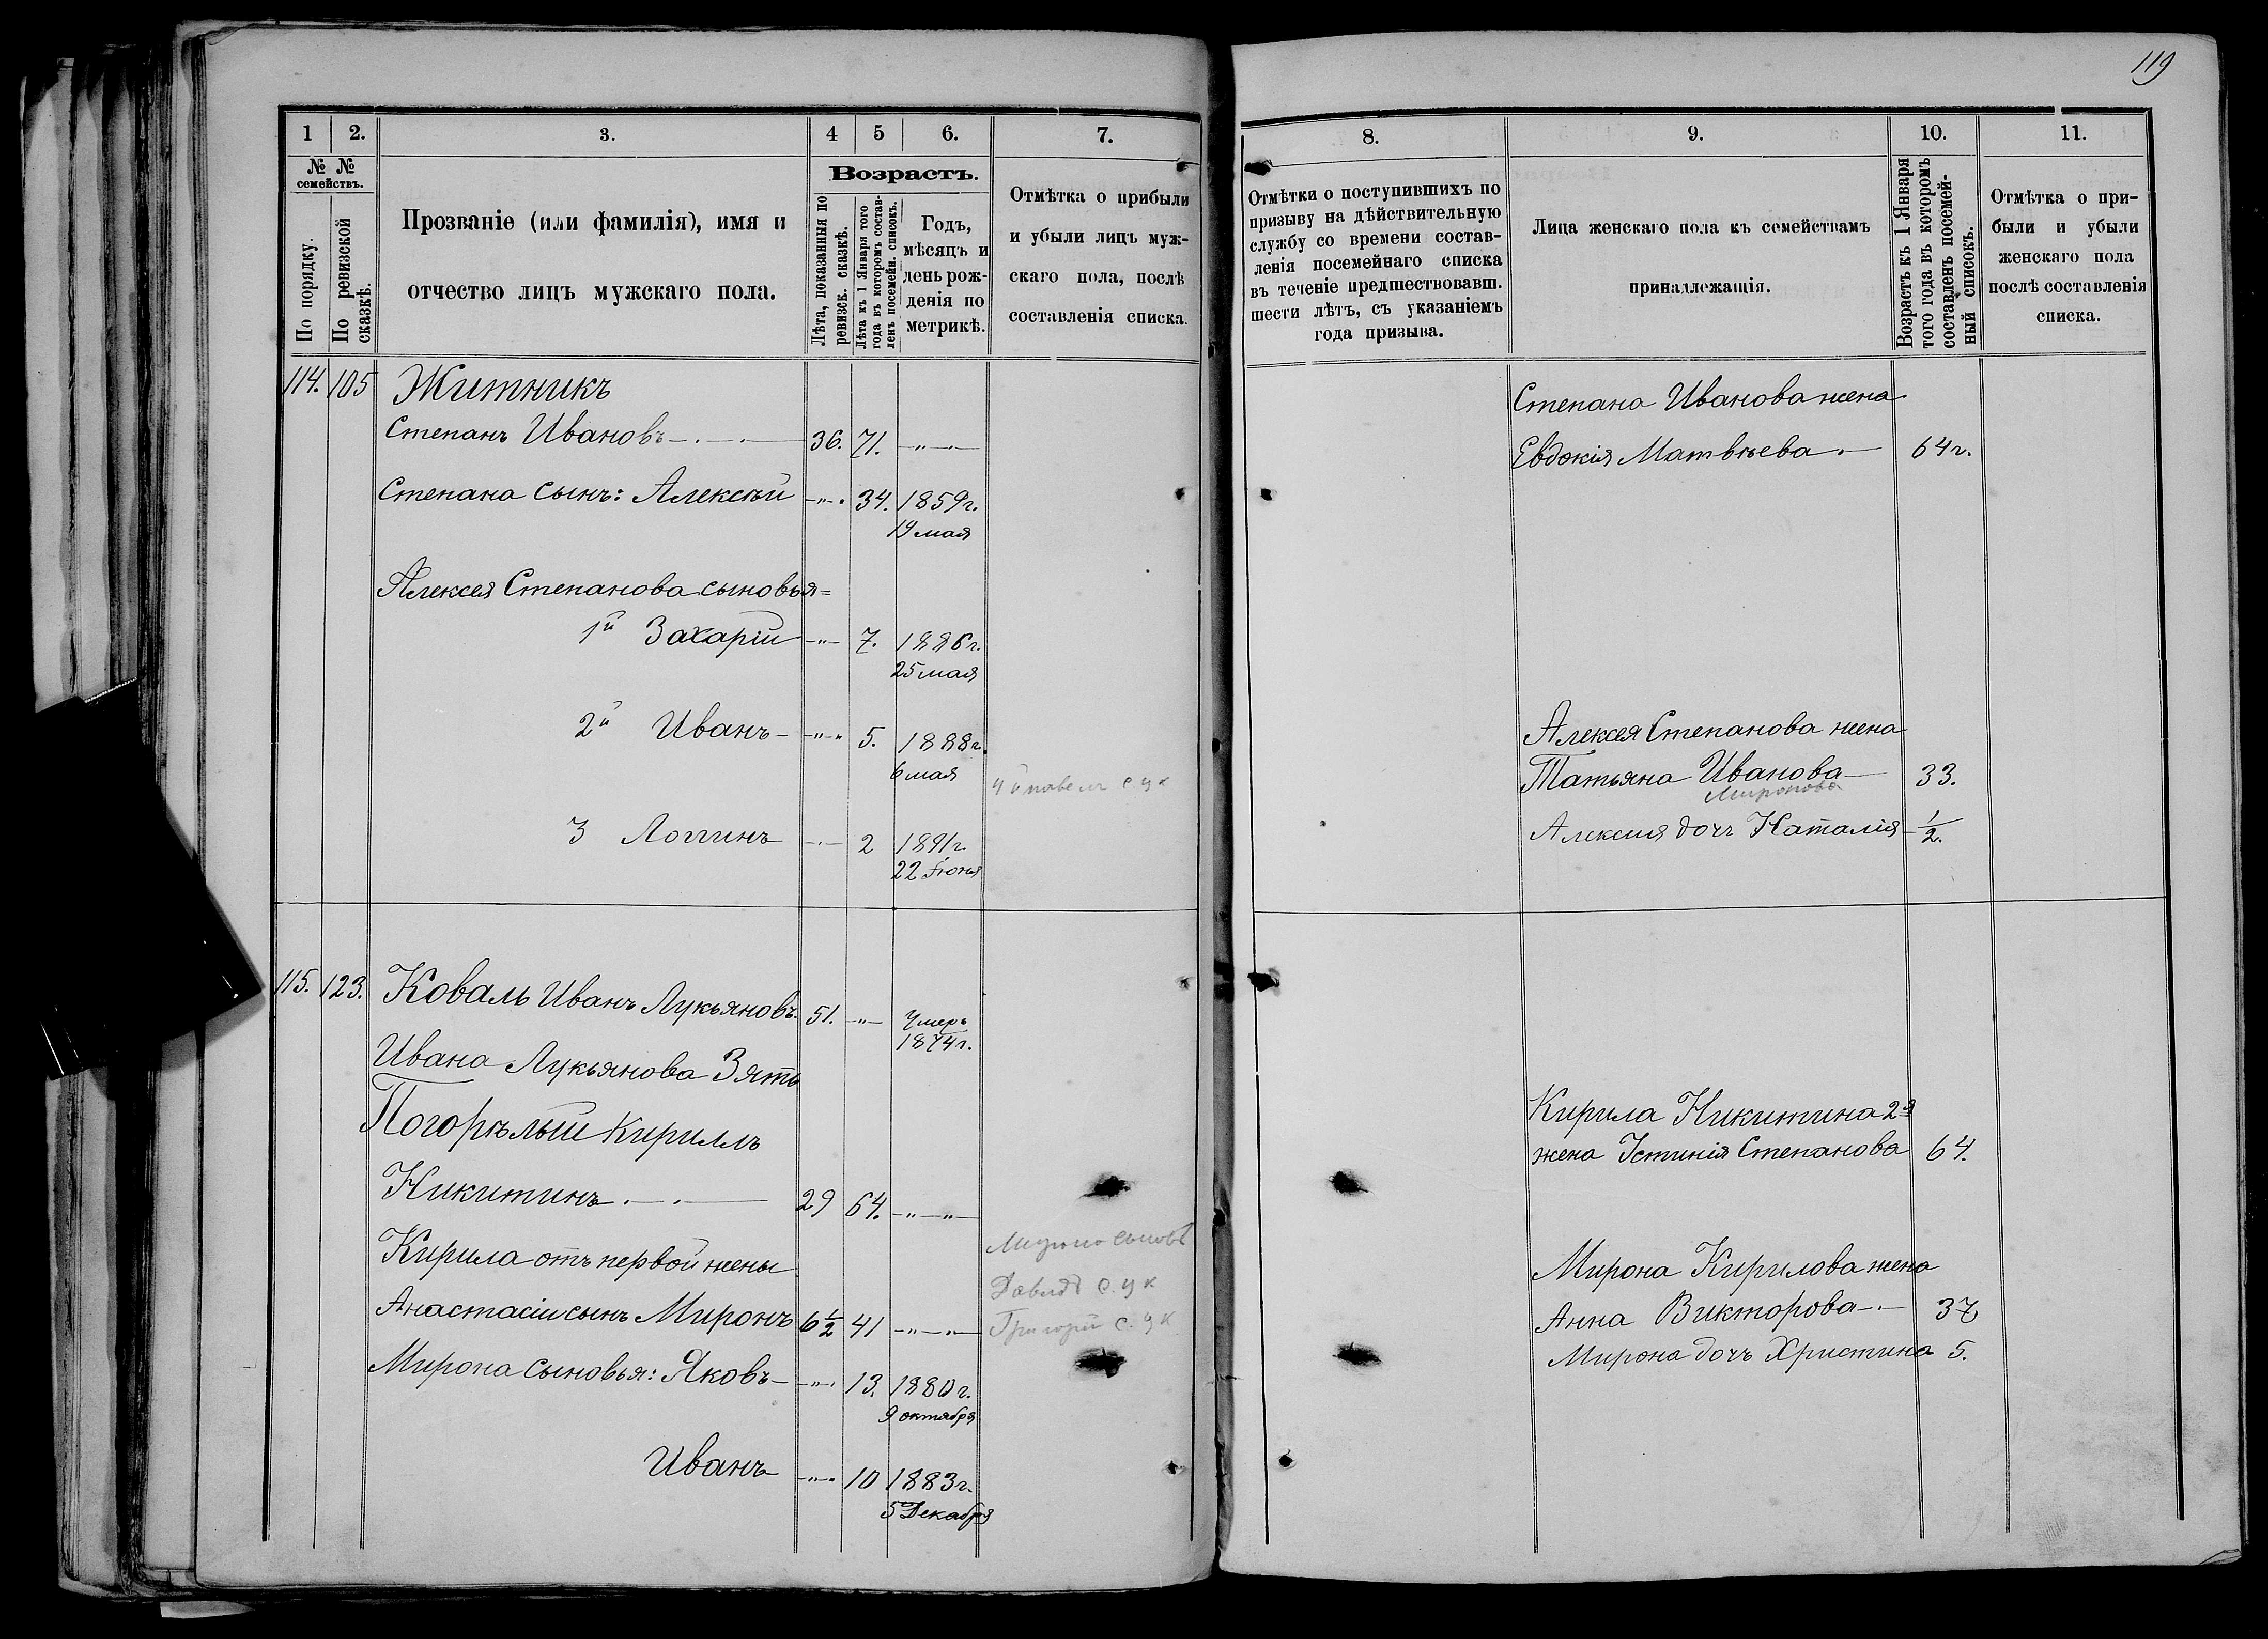 119
1
2.
3.
4
5
6.
7.
№ №
семействъ.
По порядку.
По ревизской
сказкѣ.
Прозваніе (или фамилія), имя и
отчество лицъ мужскаго пола.
Возрастъ.
Лѣта, показанныя по
ревизск. сказкѣ.
Лѣта къ 1 Января того
года въ которомъ состав-
ленъ посемейн. списокъ.
Годъ,
мѣсяцъ и
день рож-
денія по
метрикѣ.
Отмѣтка о прибыли
и убыли лицъ муж-
скаго пола, послѣ
составленія списка.
114. 105 Житникъ
Степанъ Ивановъ 36. 71. —"—
Степана сынъ: Алексѣй —"— 34. 1859г.
19 мая
Алексея Степанова сыновья=
1й Захарій —"— 7. 1886г.
25 мая
2й Иванъ —"— 5. 1888г.
6 мая
4й павелъ с. у к
3 Логгинъ —"— 2 1891г
22 Іюня
115. 123. Коваль Иванъ Лукьяновъ. 51. —"— Умеръ
1874г.
Ивана Лукьянова Зять
Погорѣлый Кириллъ
Никитинъ 29 64. —"—"—
Кирила отъ первой жены
Мирона сыновья
Давидъ с. у к
Анастасіи сынъ Миронъ 6½ 41 —"—"— Григорій с. у к
Мирона сыновья: Яковъ —"— 13. 1880г.
9 октября
Иванъ —"— 10 1883г.
5 Декабря
8.
9.
10.
11.
Отмѣтки о поступившихъ по
призыву на дѣйствительную
службу со времени состав-
ленія посемейнаго списка
въ теченіе предшествовавш.
шести лѣтъ, съ указаніемъ
года призыва.
Лица женскаго пола къ семействамъ
принадлежащія.
Возрастъ къ 1 Января
того года въ которомъ
составленъ посемей-
ный списокъ.
Отмѣтка о при-
были и убыли
женскаго пола
послѣ составленія
списка.
Степана Иванова жена
Евдокія Матвѣева. — 64г.
Алексея Степанова жена
Татьяна Иванова — 33.
Миронова
Алексия дочь Наталія ½.
Кирила Никитина 2я
жена Устинія Степанова 64.
Мирона Кирилова жена
Анна Викторова 37
Мирона дочь Христина 5.